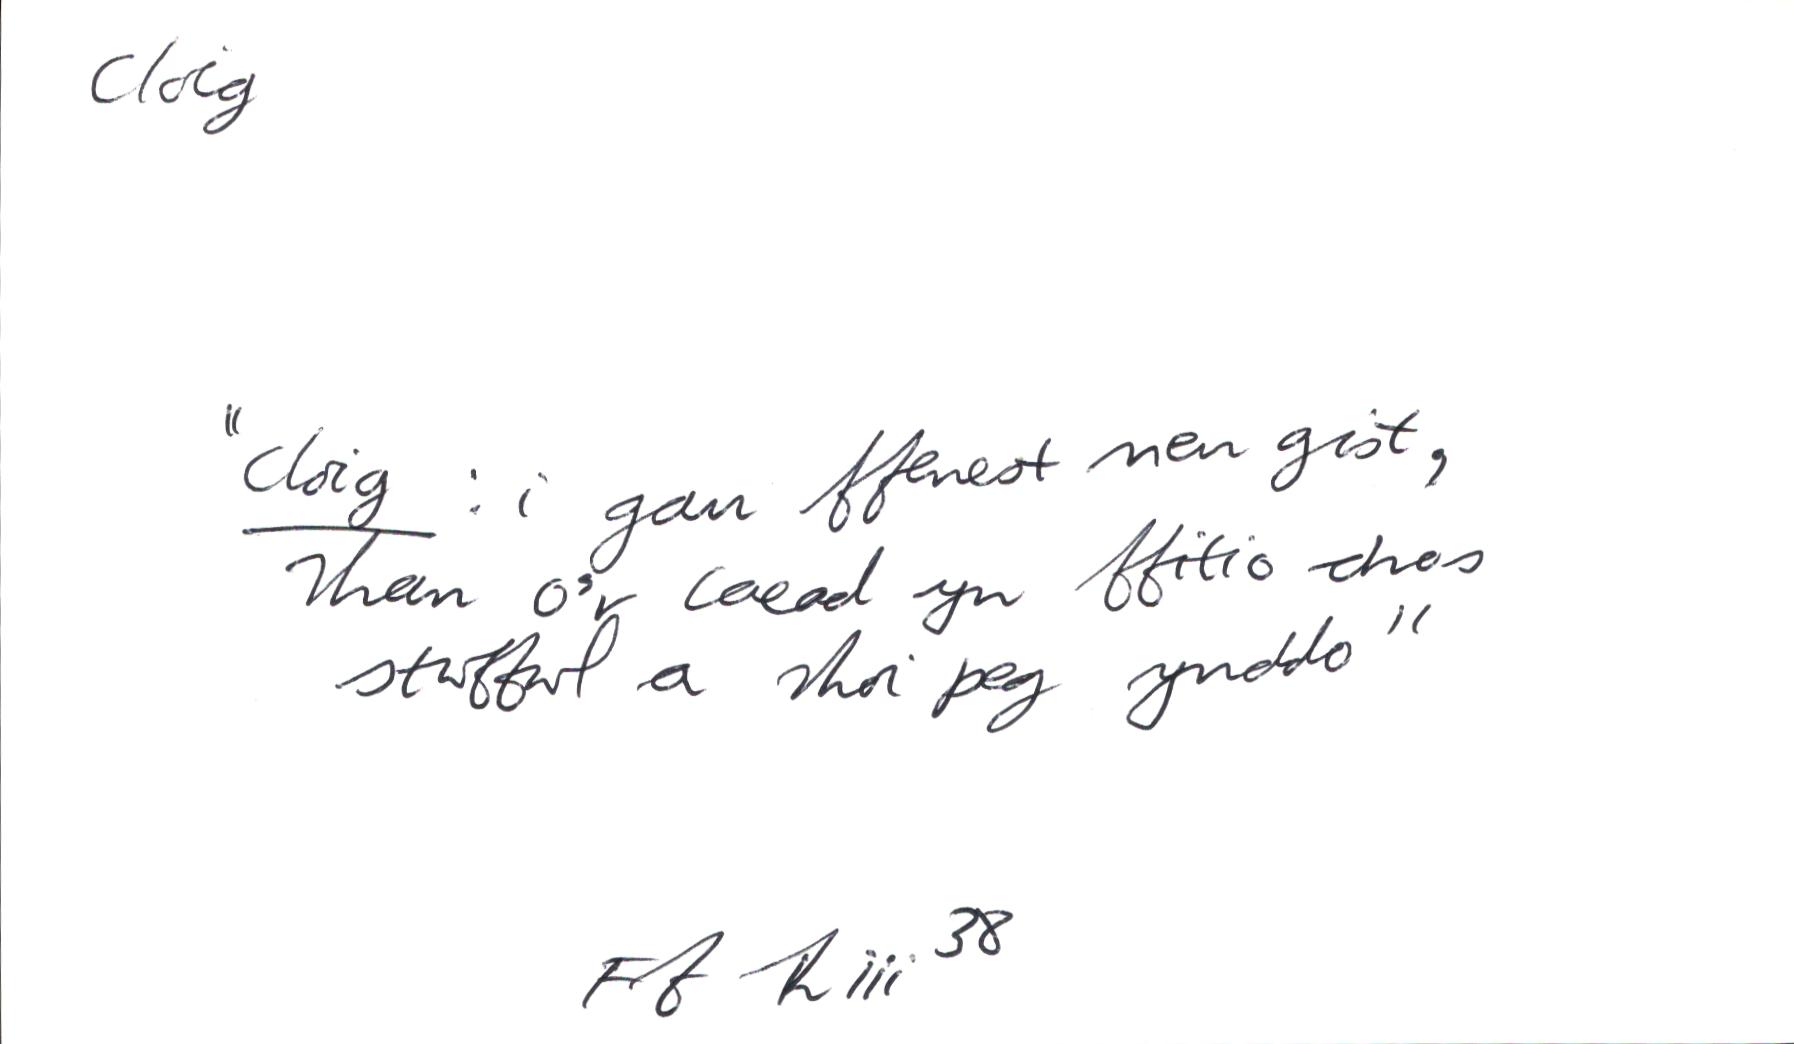 Cloig
"Cloig : i gau ffenest neu gist,
rhan o'r caead yn ffitio dros
stwffwl a rhoi peg ynddo"
Ff Rh iii 38